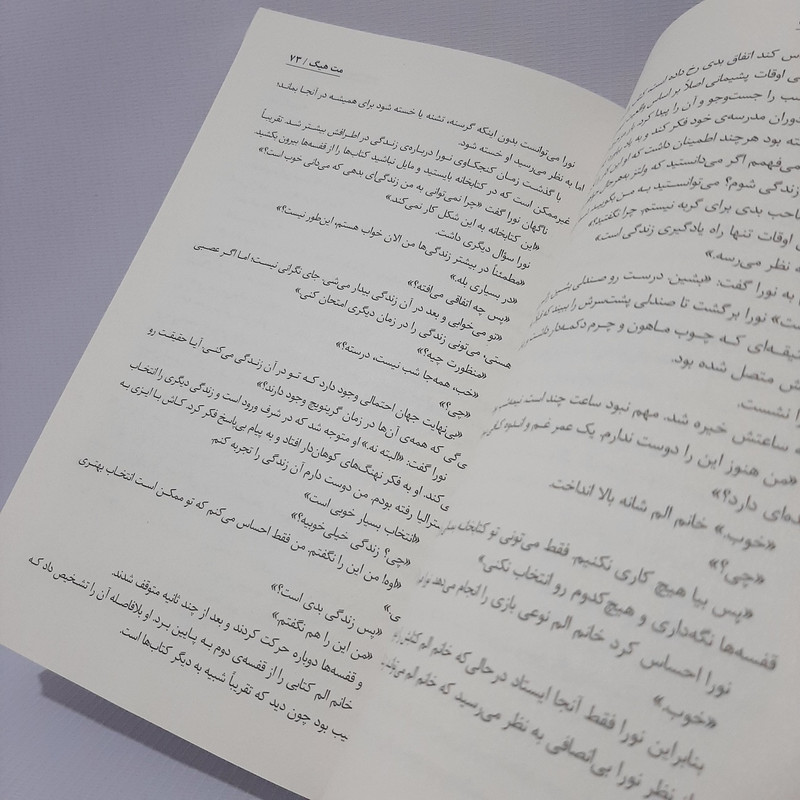 مت هیگ / ۷۳
نورا می‌توانست بدون اینکه گرسنه، تشنه یا خسته شود برای همیشه در آنجا بماند؛
اما به نظر می‌رسید او خسته شود.
با گذشت زمان کنجکاوی نورا درباره‌ی زندگی در اطرافش بیشتر شد. تقریباً
غیرممکن است که در کتابخانه بایستید و مایل نباشید کتاب‌ها را از قفسه‌ها بیرون بکشید.
ناگهان نورا گفت «چرا نمی‌توانی به من زندگی‌ای بدهی که می‌دانی خوب است؟»
«این کتابخانه به این شکل کار نمی‌کند»
نورا سؤال دیگری داشت.
«مطمئناً در بیشتر زندگی‌ها من الان خواب هستم، این‌طور نیست؟»
«در بسیاری بله.»
«پس چه اتفاقی می‌افته؟»
«تو می‌خوابی و بعد در آن زندگی بیدار می‌شی. جای نگرانی نیست؛ اما اگر عصبی
هستی، می‌تونی زندگی را در زمان دیگری امتحان کنی»
«منظورت چیه؟»
«خب، همه‌جا شب نیست، درسته؟»
«چی؟»
«بی‌نهایت جهان احتمالی وجود دارد که تو در آن زندگی می‌کنی. آیا حقیقت رو
ی‌گی که همه‌ی آن‌ها در زمان گرینویچ وجود دارند؟»
نورا گفت: «البته نه.» او متوجه شد که در شرف ورود است و زندگی دیگری را انتخاب
ی کند. او به فکر نهنگ‌های کوهان‌دار افتاد و به پیام بی‌پاسخ فکر کرد. کاش با ایزی به
سترالیا رفته بودم. من دوست دارم آن زندگی را تجربه کنم.
«انتخاب بسیار خوبی است»
«چی؟ زندگی خیلی خوبیه؟»
«اوه! من این را نگفتم. من فقط احساس می‌کنم که تو ممکن است انتخاب بهتری
ی»
«پس زندگی بدی است؟»
«من این را هم نگفتم»
و قفسه‌ها دوباره حرکت کردند و بعد از چند ثانیه متوقف شدند.
خانم الم کتابی را از قفسه‌ی دوم به پایین برد. او بلافاصله آن را تشخیص داد که
یب بود چون دید که تقریباً شبیه به دیگر کتاب‌ها است.
س کند اتفاق بدی رخ داده است
ی اوقات پشیمانی اصلاً بر اساس
سب را جست‌وجو و آن را پیدا کرد.
دوران مدرسه‌ی خود فکر کند و به یاد
ته بود هرچند اطمینان داشت که او
ی‌فهمم اگر می‌دانستید که ولتز
زندگی شوم؟ می‌توانستید به من بگویید
احب بدی برای گربه نیستم. چرا نگفتید؟»
ی اوقات تنها راه یادگیری زندگی است»
ه نظر می‌رسه.»
به نورا گفت: «بشین. درست رو صندلی بشین.
ست» نورا برگشت تا صندلی پشت‌سرش را ببیند که
تیقه‌ای که چوب ماهون و چرم دکمه‌دار داشت
ش متصل شده بود.
را نشست.
ه ساعتش خیره شد. مهم نبود ساعت چند است
«من هنوز این را دوست ندارم. یک عمر غم و اندوه
ده‌ای دارد؟»
«خوب.» خانم الم شانه بالا انداخت.
«چی؟»
«پس بیا هیچ کاری نکنیم. فقط می‌تونی تو کتابخانه
قفسه‌ها نگه‌داری و هیچ‌کدوم رو انتخاب نکنی»
نورا احساس کرد خانم الم نوعی بازی را انجام می‌دهد
«خوب.»
بنابراین نورا فقط آنجا ایستاد درحالی‌که خانم الم
از نظر نورا بی‌انصافی به نظر می‌رسید که خانم الم